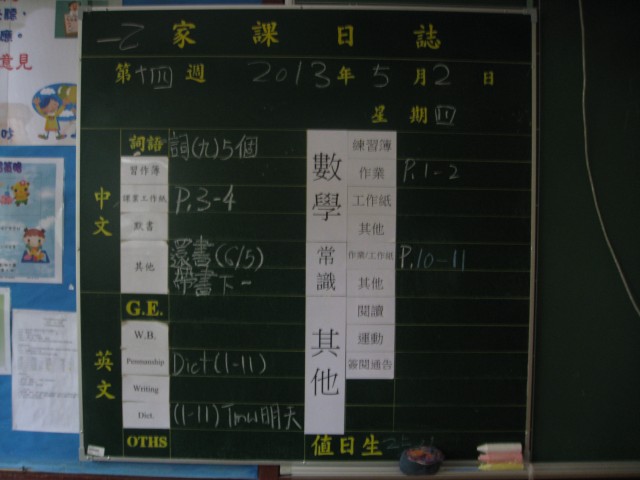 一乙 家課日誌
第十四週 2013年5月2日
星期四
中文
詞語 詞(九)5個
習作簿
課業工作紙 P.3-4
默書
其他 還書(6/5)
帶書下一
英文
G.E.
W.B.
Penmanship Dict(1-11)
Writing
Dict. (1-11) Tmw明天
OTHS
數學
練習簿
作業 P.1-2
工作紙
其他
常識
作業/工作紙 P.10-11
其他
其他
閱讀
運動
簽閱通告
值日生
意見